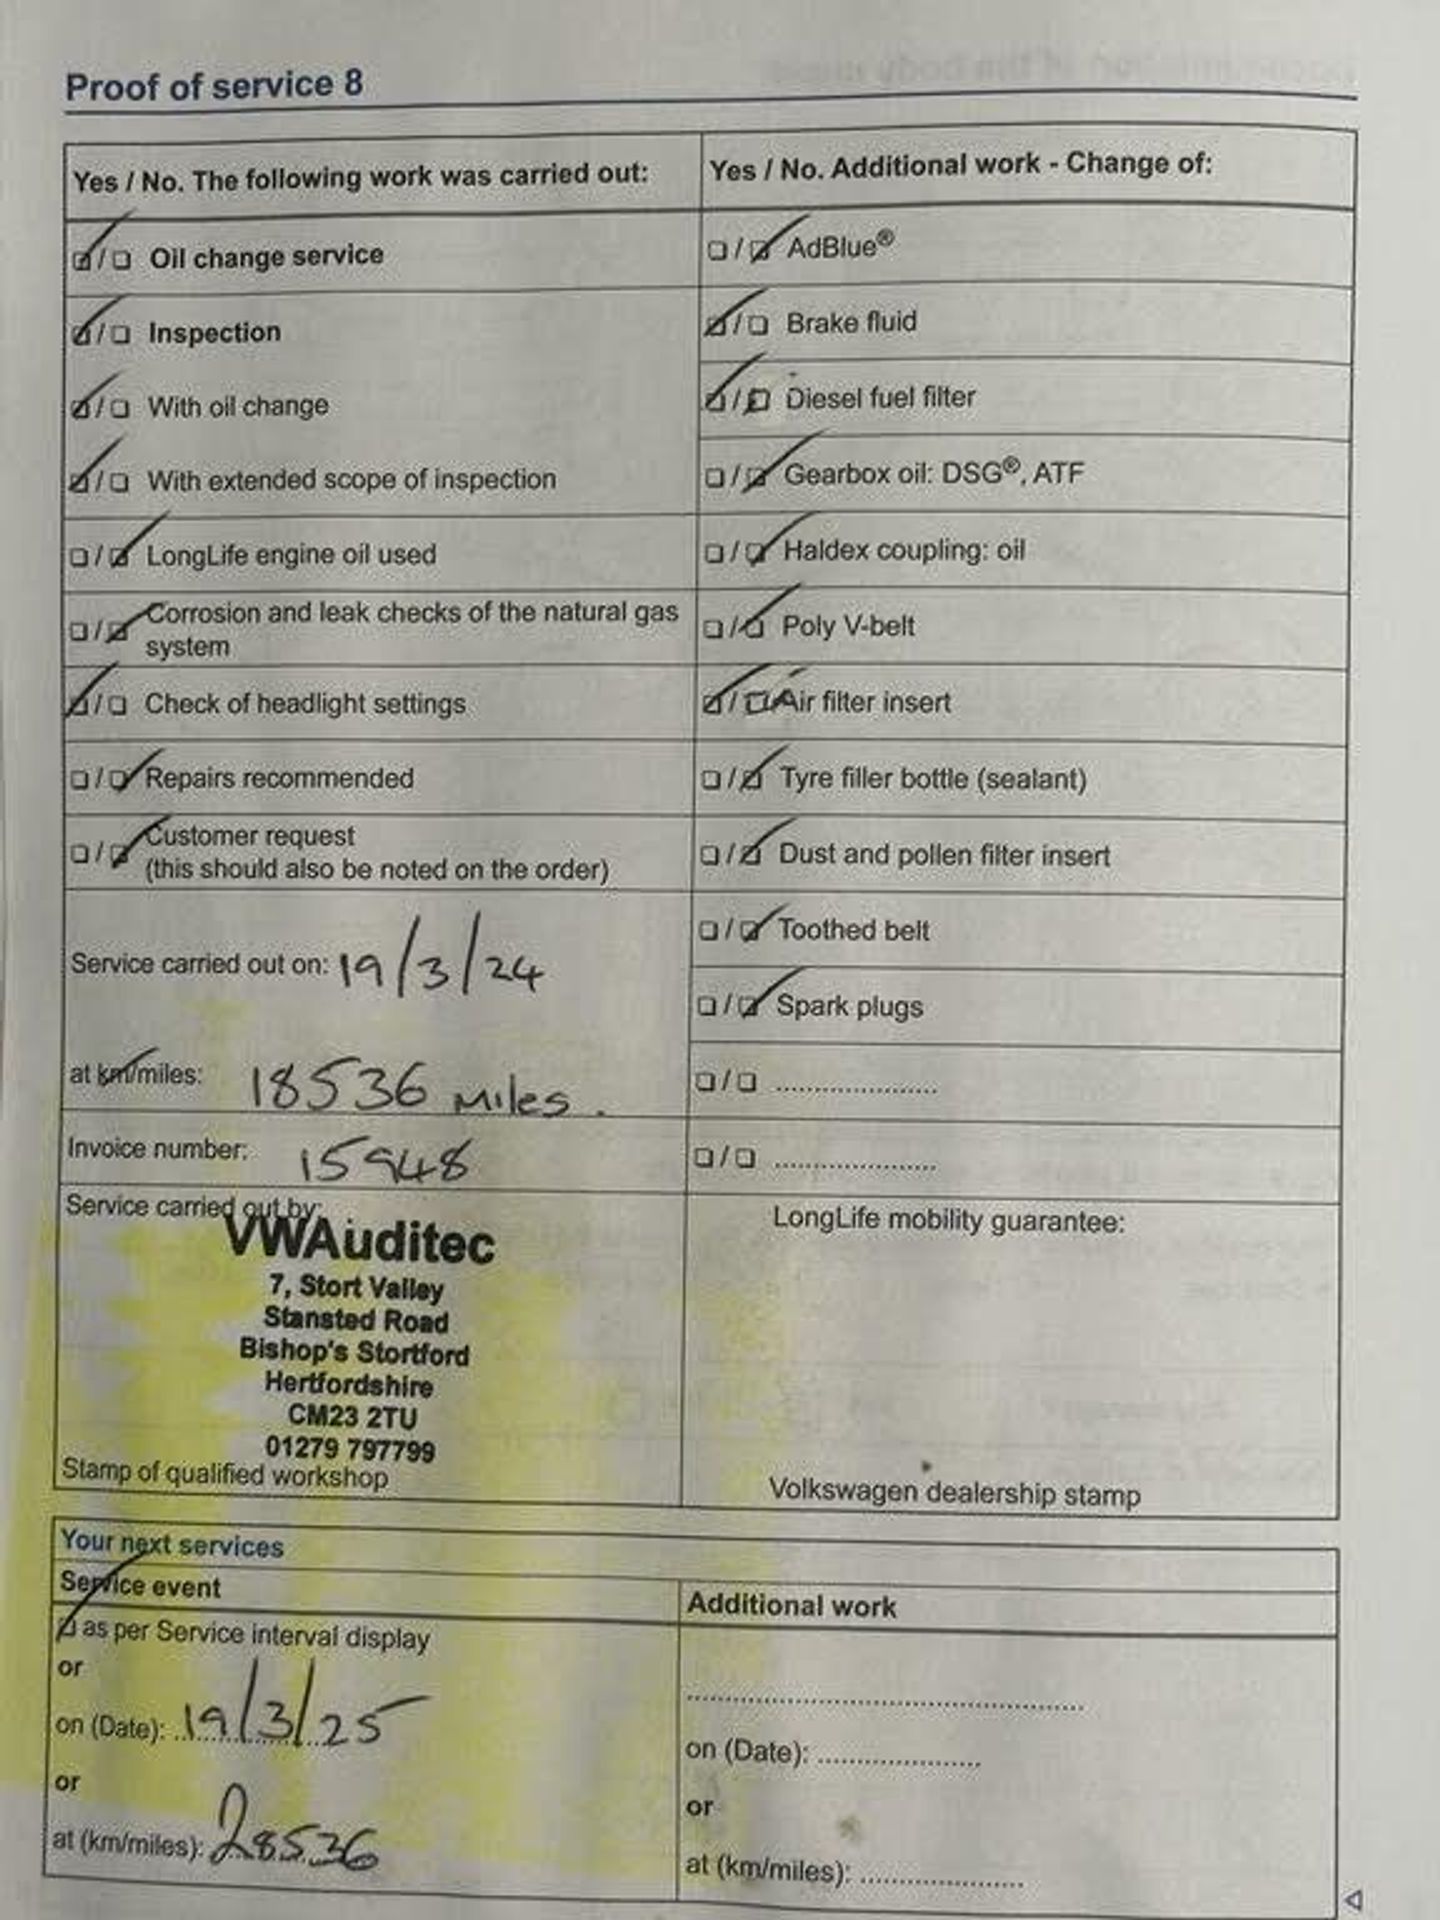 Proof of service 8
Yes / No. The following work was carried out:
☑/☐ Oil change service
☑/☐ Inspection
☑/☐ With oil change
☑/☐ With extended scope of inspection
☐/☑ LongLife engine oil used
☐/☑ Corrosion and leak checks of the natural gas
system
☑/☐ Check of headlight settings
☐/☑ Repairs recommended
☐/☑ Customer request
(this should also be noted on the order)
Service carried out on: 19/3/24
at km/miles: 18536 miles.
Invoice number: 15948
Service carried out by:
VWAuditec
7, Stort Valley
Stansted Road
Bishop's Stortford
Hertfordshire
CM23 2TU
01279 797799
Stamp of qualified workshop
Yes / No. Additional work - Change of:
☐/☑ AdBlue®
☑/☐ Brake fluid
☑/☐ Diesel fuel filter
☐/☑ Gearbox oil: DSG®, ATF
☐/☑ Haldex coupling: oil
☐/☑ Poly V-belt
☑/☐ Air filter insert
☐/☑ Tyre filler bottle (sealant)
☐/☑ Dust and pollen filter insert
☐/☑ Toothed belt
☐/☑ Spark plugs
☐/☐ ....................
☐/☐ ....................
LongLife mobility guarantee:
Volkswagen dealership stamp
Your next services
Service event
☑ as per Service interval display
or
on (Date): 19/3/25
or
at (km/miles): 28536
Additional work
..................................................
on (Date): ....................
or
at (km/miles): ....................